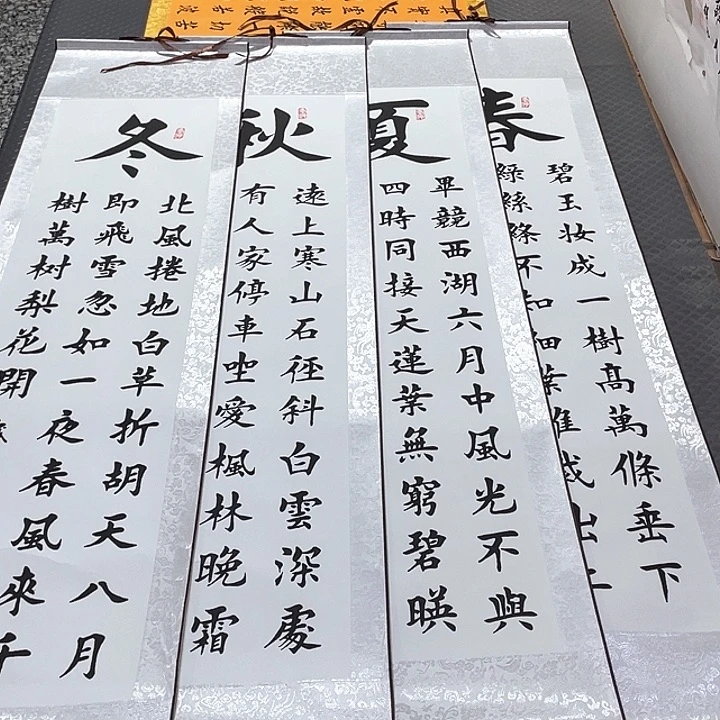 春
碧玉妆成一樹高萬條垂下
綠絲絛不知細葉誰裁出二
夏
畢競西湖六月中風光不與
四時同接天蓮葉無窮碧暎
秋
遠上寒山石徑斜白雲深處
有人家停車坐愛楓林晚霜
冬
北風捲地白草折胡天八月
即飛雪忽如一夜春風來千
樹萬树梨花開